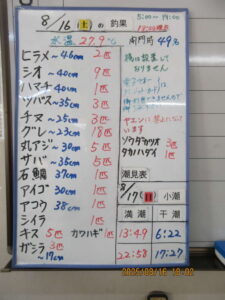 8/16(土)の釣果
5:00~19:00
18:00現在
水温 27.9℃
開門時 49名
ヒラメ~46cm 2匹
シオ~40cm 9匹
ハマチ~40cm 1匹
ツバス~35cm 3匹
チヌ~25cm 3匹
グレ~23cm 18匹
丸アジ~30cm 5匹
サバ~35cm 5匹
石鯛 37cm 1匹
アイゴ 30cm 1匹
アコウ 38cm 1匹
シイラ 1匹
キス 5匹 カワハギ 1匹
ガシラ 3匹
~17cm
橋は設置して
おりません
ヤエンは禁止になって
います
ソウダガツオ 3匹
タカノハダイ 1匹
潮見表
8/17(日) 小潮
満潮 干潮
13:49 6:22
22:58 17:27
2025/08/16 18:02